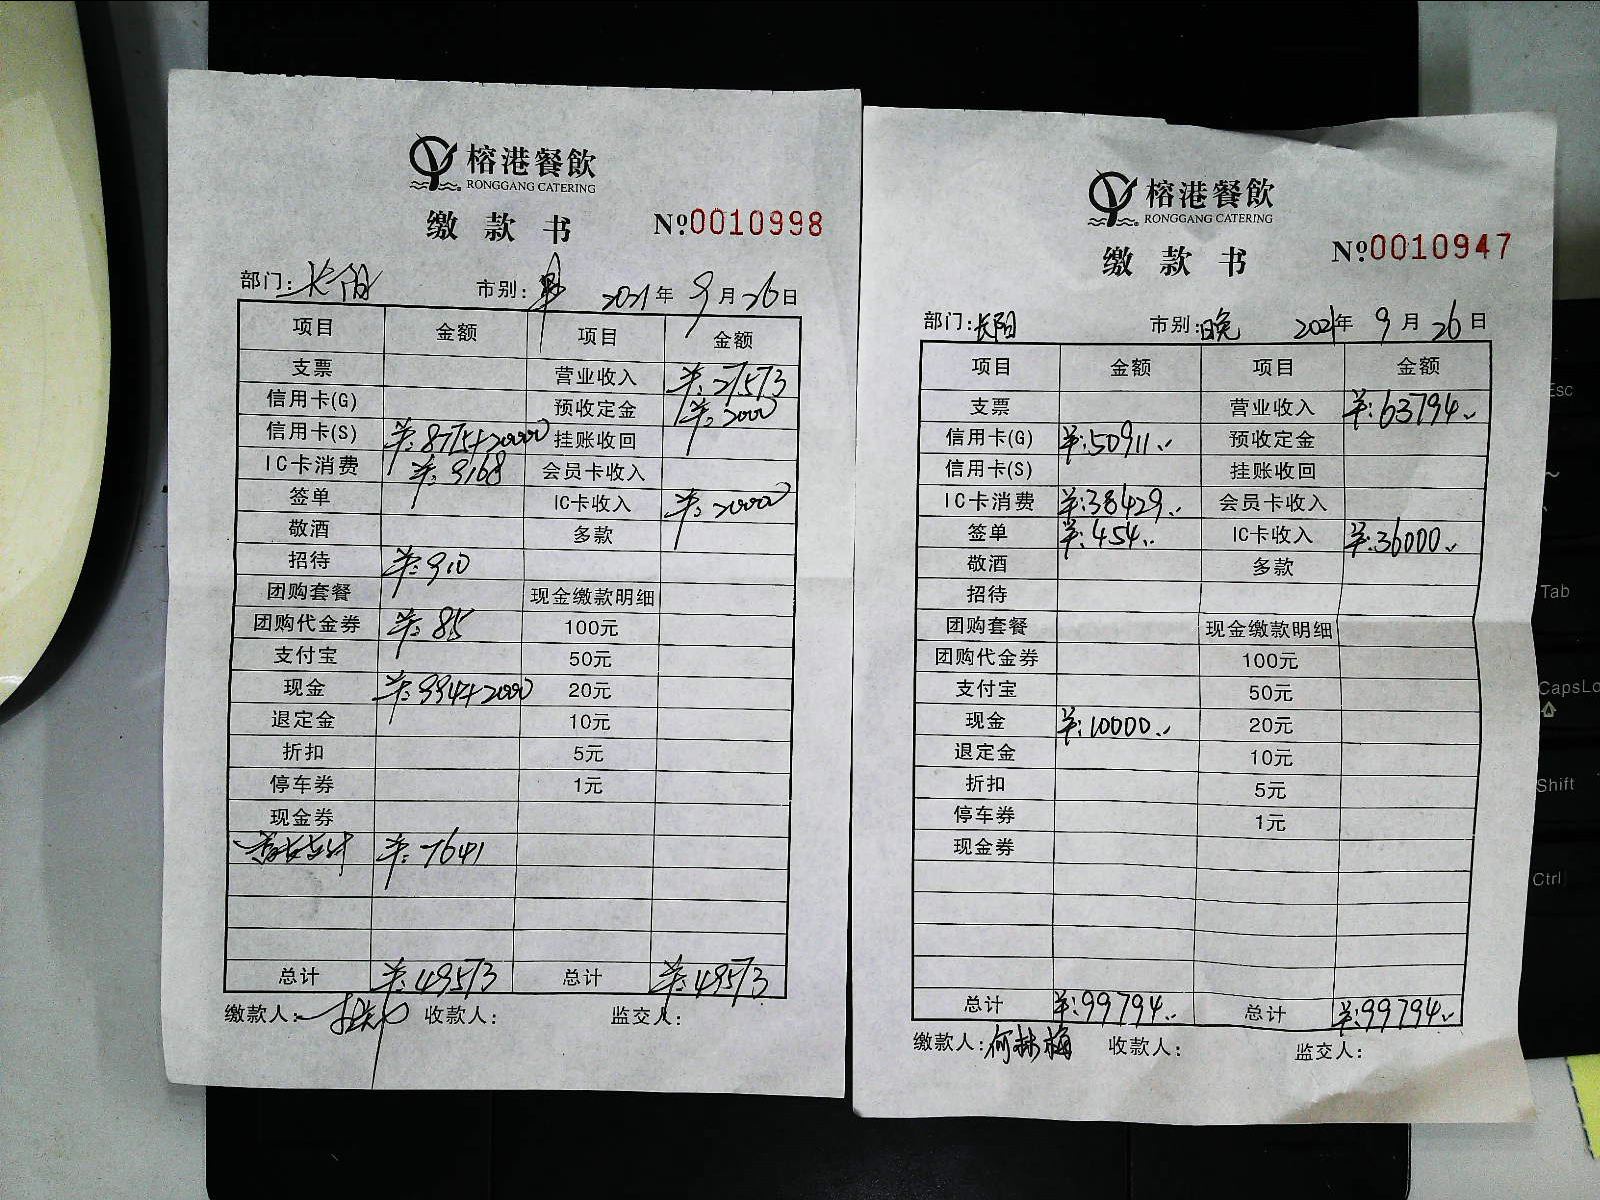 榕港餐飲
RONGGANG CATERING
缴款书 №0010998
部门: 长阳 市别: 2021年 9月26日
项目 金额 项目 金额
支票 营业收入 ¥:27573
信用卡(G) 预收定金 ¥:2000
信用卡(S) ¥:8775+20000 挂账收回
IC卡消费 ¥:9168 会员卡收入
签单 IC卡收入 ¥:20000
敬酒 多款
招待 ¥:910
团购套餐 现金缴款明细
团购代金券 ¥:85 100元
支付宝 50元
现金 ¥:994+2000 20元
退定金 10元
折扣 5元
停车券 1元
现金券
¥:7641
总计 ¥:49573 总计 ¥:49573
缴款人: 收款人: 监交人:
榕港餐飲
RONGGANG CATERING
缴款书 №0010947
部门:长阳 市别:晚 2021年 9月26日
项目 金额 项目 金额
支票 营业收入 ¥:63794..
信用卡(G) ¥:50911.. 预收定金
信用卡(S) 挂账收回
IC卡消费 ¥:38429.. 会员卡收入
签单 ¥:454.. IC卡收入 ¥:36000..
敬酒 多款
招待
团购套餐 现金缴款明细
团购代金券 100元
支付宝 50元
现金 ¥:10000.. 20元
退定金 10元
折扣 5元
停车券 1元
现金券
总计 ¥:99794.. 总计 ¥:99794..
缴款人:何林梅 收款人: 监交人:
Esc
Tab
CapsLo
Shift
Ctrl